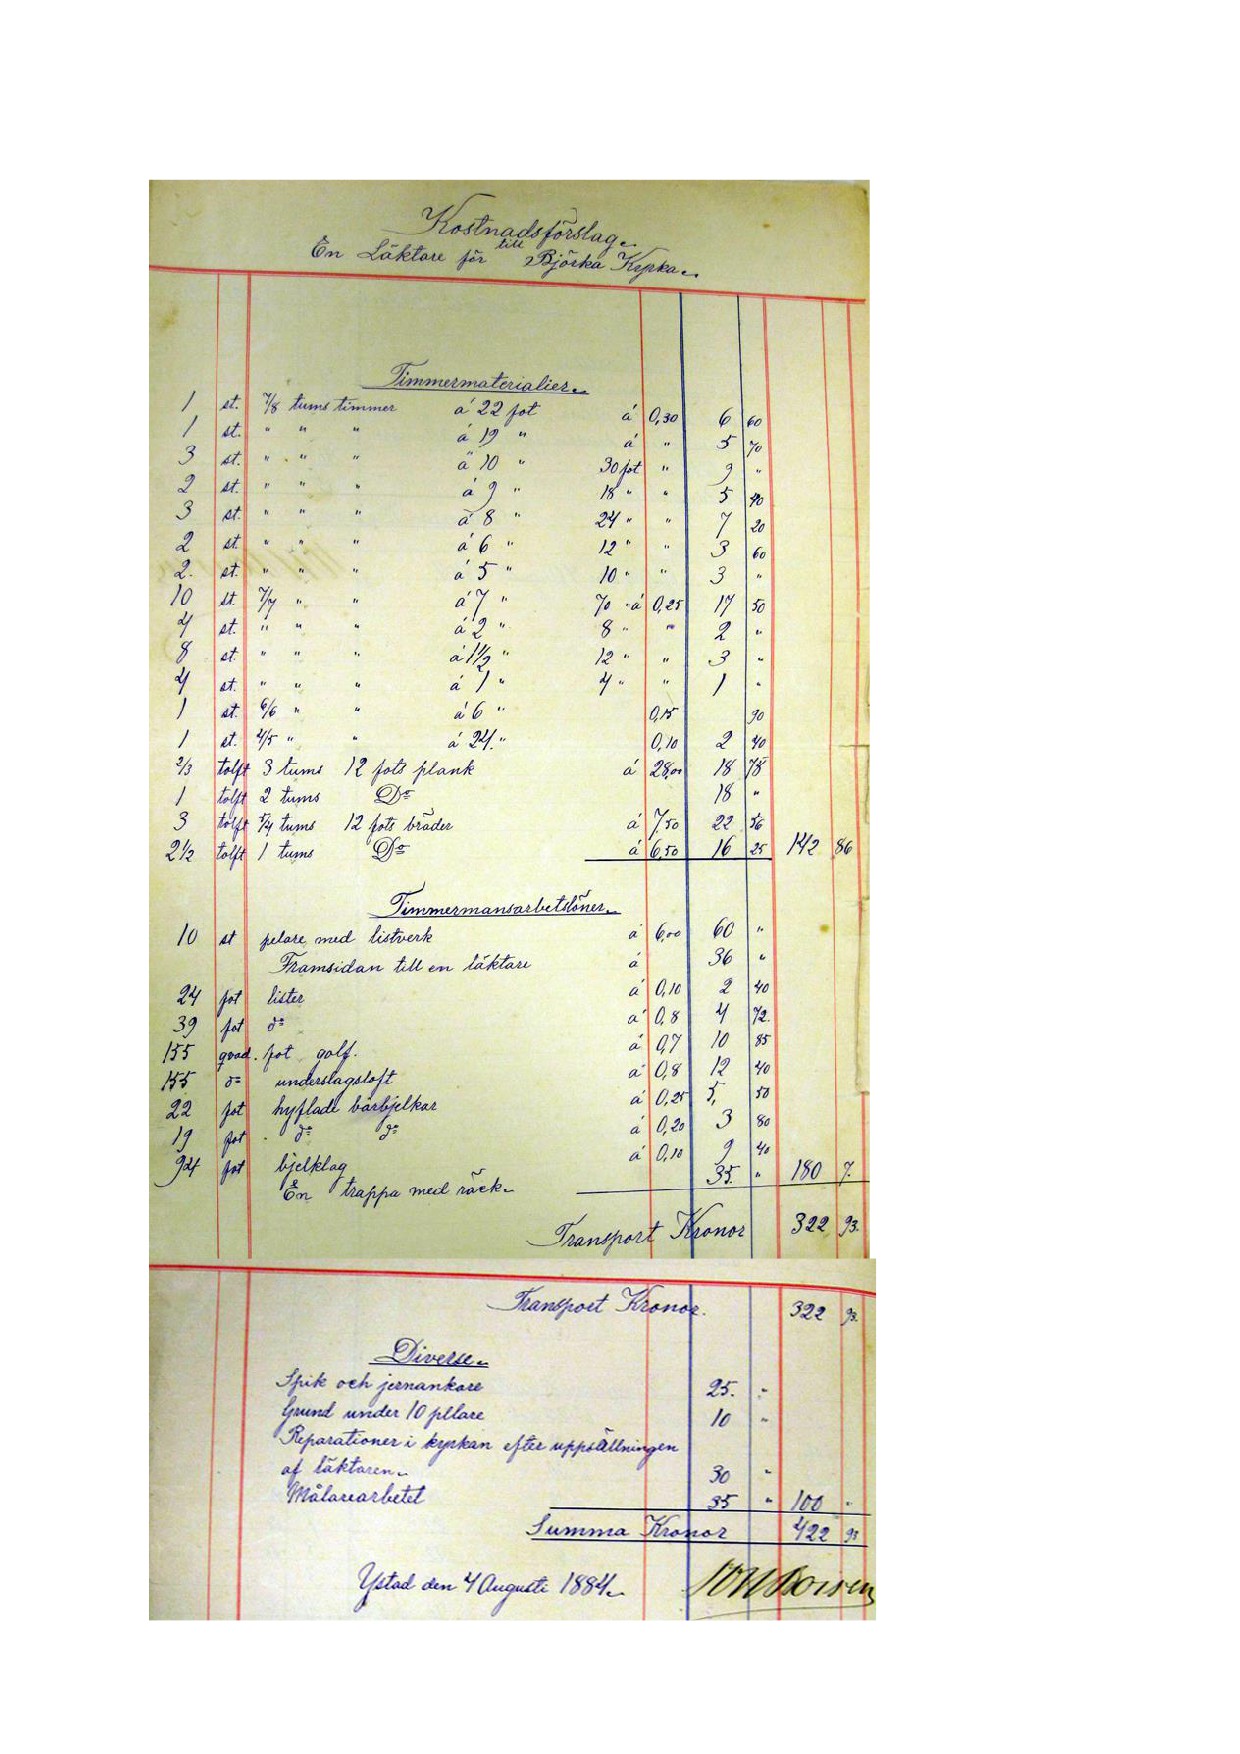 Kostnadsförslag
till
En Läktare för Björka Kyrka.
Timmermaterialier.
1 st. 7/8 tums timmer á 22 fot á 0,30 6 60
1 st. " " " á 19 " á " 5 70
3 st. " " " á 10 " 30 fot " 9 "
2 st. " " " á 9 " 18 " " 5 40
3 st. " " " á 8 " 24 " " 7 20
2 st. " " " á 6 " 12 " " 3 60
2. st. " " " á 5 " 10 " " 3 "
10 st. 7/7 " " á 7 " 70 " á 0,25 17 50
4 st. " " " á 2 " 8 " " 2 "
8 st. " " " á 1 1/2 " 12 " " 3 "
4 st. " " " á 1 " 4 " " 1 "
1 st. 6/6 " " á 6 " 0,15 90
1 st. 4/5 " " á 24 " 0,10 2 40
2/3 tolft 3 tums 12 fots plank á 28,00 18 75
1 tolft 2 tums Do 18 "
3 tolft 5/4 tums 12 fots bräder á 7,50 22 56
2 1/2 tolft 1 tums Do á 6,50 16 25 142 86
Timmermansarbetslöner.
10 st pelare med listverk á 6,00 60 "
Framsidan till en läktare á 36 "
24 fot lister á 0,10 2 40
39 fot do á 0,8 4 72.
155 qvad. fot golf. á 0,7 10 85
155 do underslagsloft á 0,8 12 40
22 fot hyflade bärbjelkar á 0,25 5, 50
19 fot do do á 0,20 3 80
94 fot bjelklag á 0,10 9 40
En trappa med räck. 35. " 180 7.
Transport Kronor 322 93.
Transport Kronor. 322 93.
Diverse.
Spik och jernankare 25. "
Grund under 10 pllare 10 "
Reparationer i kyrkan efter uppställningen
af läktaren. 30 "
Målarearbetet 35 " 100 "
Summa Kronor 422 93
Ystad den 4 Augusti 1884.